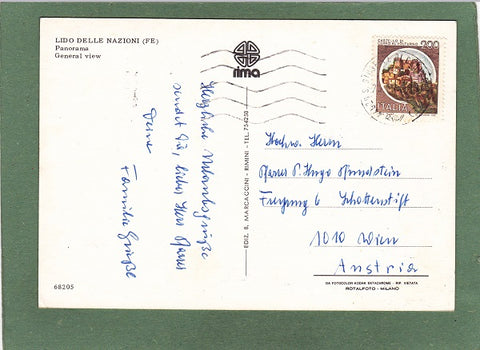 LIDO DELLE NAZIONI (FE)
Panorama
General view
rima
200
ITALIA
Herzliche Urlaubsgrüße
sendet Dir, lieber Herr Pfarrer
Deine
Familie
EDIZ. B. MARCACCINI - RIMINI - TEL. 754250
Hochw. Herrn
Pfarrer P. Hugo
Freyung 6 Schottenstift
1010 Wien
Austria
DA FOTOCOLORI KODAK EKTACHROME - RIP. VIETATA
ROTALFOTO - MILANO
68205